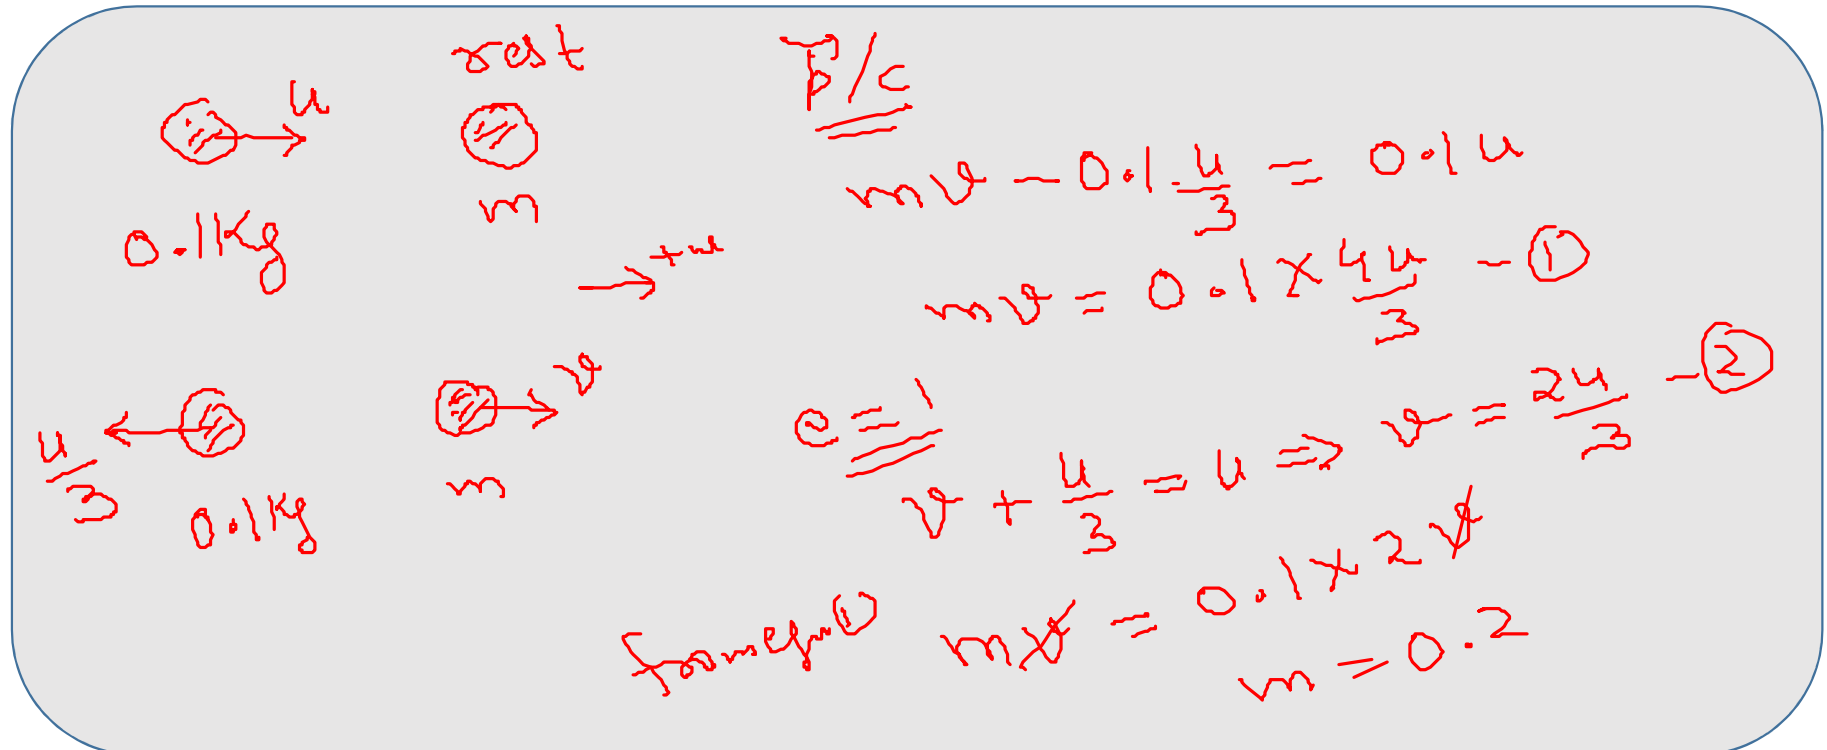 rest
u
m
0.1Kg
+ve
u/3
0.1Kg
v
m
P/c
mv - 0.1 u/3 = 0.1u
mv = 0.1 × 4u/3 - ①
e = 1
v + u/3 = u ⇒ v = 2u/3 - ②
from eqn ① mv = 0.1 × 2v
m = 0.2